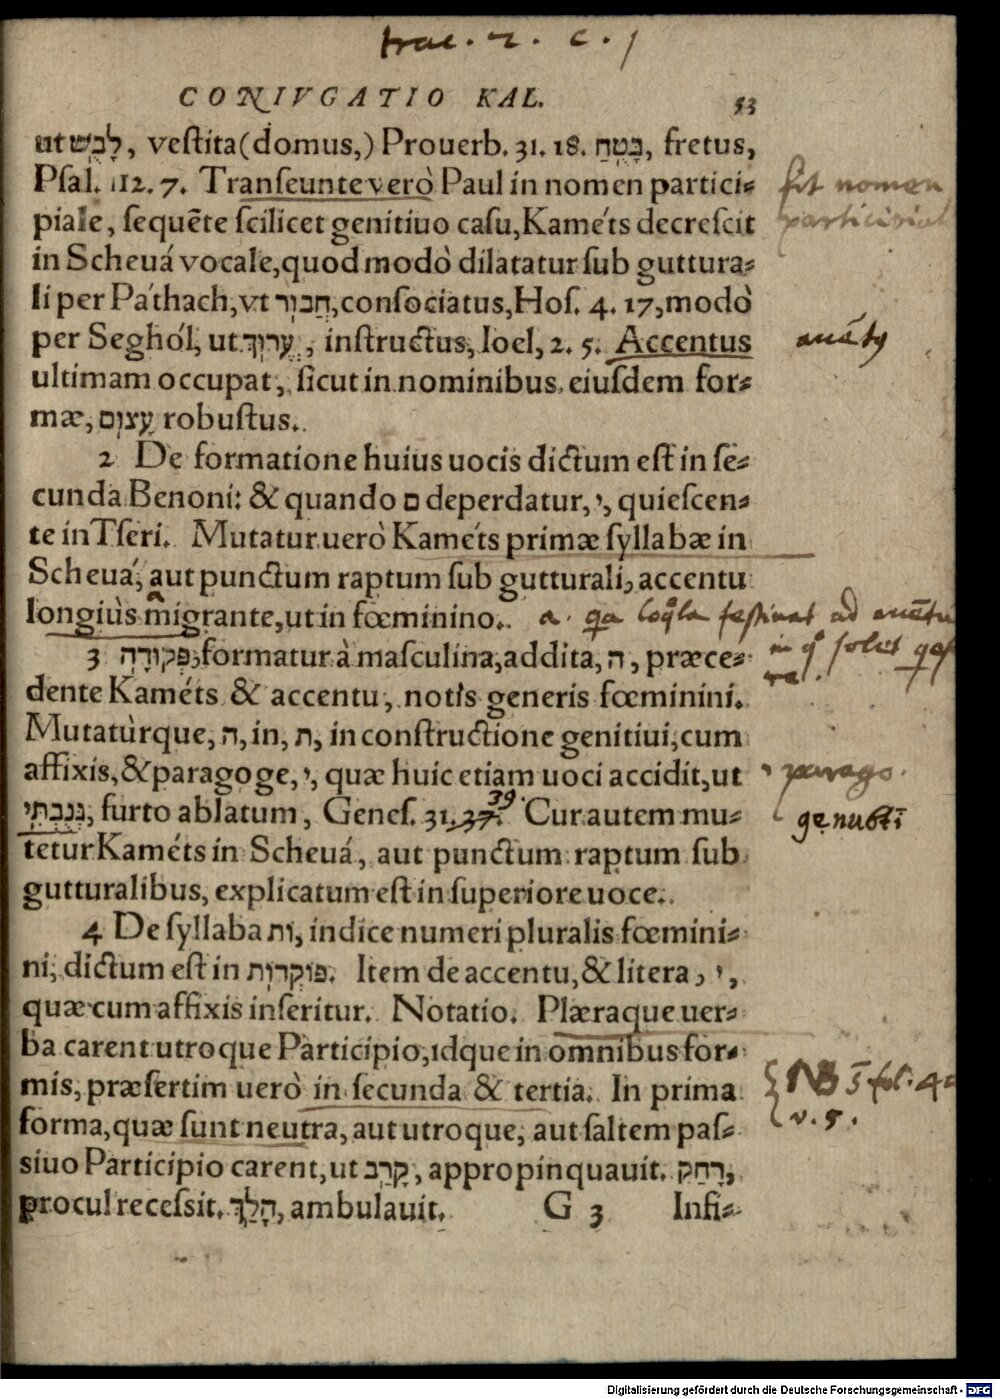 trac. 2. c. 1
CONIVGATIO KAL.
53
ut לָבֻשׁ, veſtita (domus,) Prouerb. 31. 18. בָּטֻחַ, fretus,
Pſal. 112. 7. Tranſeunte verò Paul in nomen partici-
piale, ſequẽte ſcilicet genitiuo caſu, Kaméts decreſcit
in Scheuá vocale, quod modò dilatatur ſub guttura-
li per Páthach, vt חֲבוּר, conſociatus, Hoſ. 4. 17, modò
per Seghól, ut עֱרוּךְ, inſtructus, Ioel, 2. 5. Accentus
ultimam occupat, ſicut in nominibus eiuſdem for-
mæ, עָצוּם robuſtus.
2 De formatione huius uocis dictum eſt in ſe-
cunda Benoni: & quando ם deperdatur, י, quieſcen-
te in Tſeri. Mutatur uerò Kaméts primæ ſyllabæ in
Scheuá, aut punctum raptum ſub gutturali, accentu
longiùs migrante, ut in fœminino.
3 פְּקוּדָה, formatur à maſculina, addita, ה, præce-
dente Kaméts & accentu, notis generis fœminini.
Mutatùrque, ה, in, ת, in conſtructione genitiui, cum
affixis, & paragoge, י, quæ huic etiam uoci accidit, ut
גְּנֻבְתִי, furto ablatum, Geneſ. 31. 37. 39. Cur autem mu-
tetur Kaméts in Scheuá, aut punctum raptum ſub
gutturalibus, explicatum eſt in ſuperiore uoce.
4 De ſyllaba וֹת, indice numeri pluralis fœmini-
ni, dictum eſt in פּוֹקְדוֹת. Item de accentu, & litera, י,
quæ cum affixis inſeritur. Notatio. Plæraque uer-
ba carent utroque Participio, idque in omnibus for-
mis, præſertim uerò in ſecunda & tertia. In prima
forma, quæ ſunt neutra, aut utroque, aut ſaltem paſ-
ſiuo Participio carent, ut קָרַב, appropinquauit. רָחַק,
procul receſsit. הָלַךְ, ambulauit.
G 3 Infi-
fit nomen
participial
a. ad
in
parago.
genubti
NB fol. 4
v. 5.
Digitalisierung gefördert durch die Deutsche Forschungsgemeinschaft - DFG